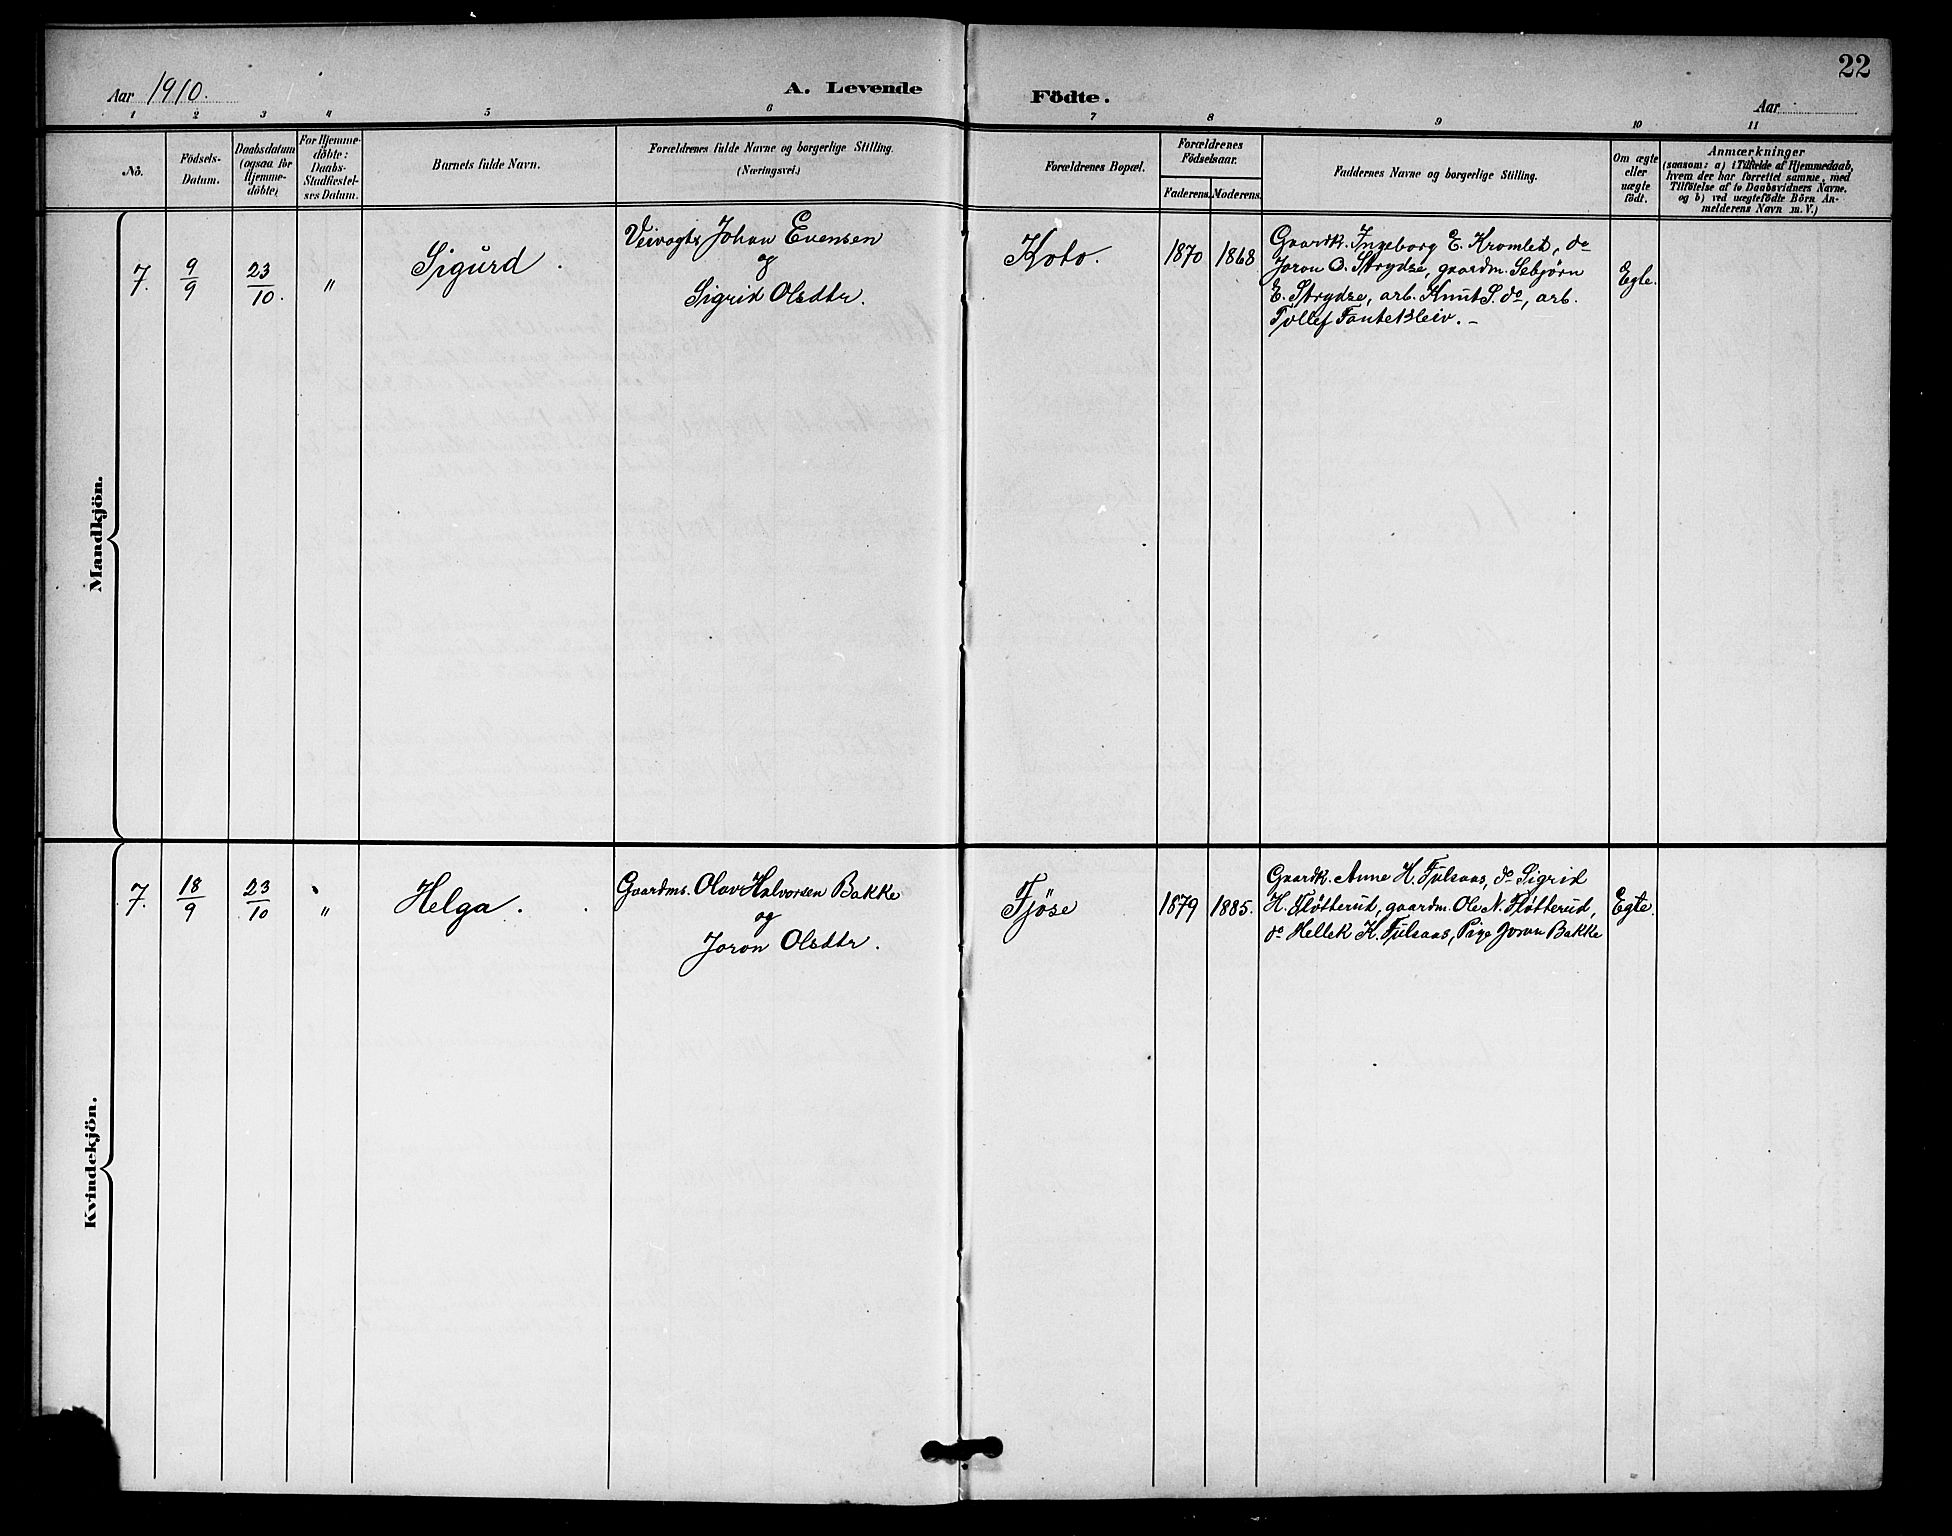 22
Aar 1910. A. Levende Födte. Aar
1 2 3 4 5 6 7 8 9 10 11
No.
Födsels-
Datum.
Daabsdatum
(ogsaa for
Hjemme-
döbte)
For Hjemme-
döbte:
Daabs-
Stadfæstel-
ses Datum.
Barnets fulde Navn.
Forældrenes fulde Navne og borgerlige Stilling.
(Næringsvei.)
Forældrenes Bopæl.
Forældrenes
Födselsaar.
Faderens. Moderens.
Faddernes Navne og borgerlige Stilling.
Om ægte
eller
uægte
födt.
Anmærkninger
(saasom: a) i Tilfælde af Hjemmedaab,
hvem der har forrettet samme, med
Tilföielse af to Daabsvidners Navne.
og b) ved uægtefödte Börn An-
melderens Navn m. V.)
Mandkjön.
7. 9/9 23/10. " Sigurd.
Veivogts Johan Evensen
og
Sigrid Olsdtr.
Koto. 1870 1868
Gaardk. Ingeborg E. Kromlet, do
Joron O. Strydse, gaardm. Sebjörn
E. Strydse, arb. Knut S. do, arb.
Tollef Fantekleiv. –
Egte.
Kvindekjön.
7. 18/9 23/10 " Helga.
Gaardms. Olav Halvorsen Bakke
og
Joron Olsdtr.
Fjöse 1879 1885.
Gaardk. Anne H. Fulsaas, do Sigrid
H. Fløtterud, gaardm. Ole N. Fløtterud,
do Hellek K. Fulsaas, Pige Joron Bakke
Egte.